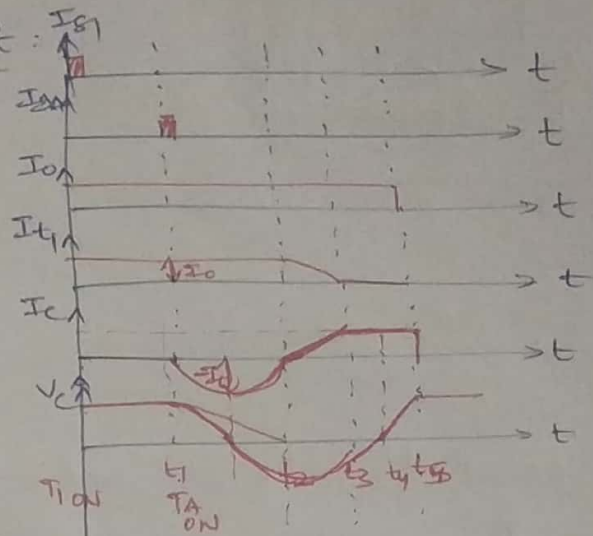 t : Ig1
t
t
I0
t
It1
I0
t
Ic
-Ip
t
Vc
t
t1 t2 t3 t4 t5
T1 ON
TA
ON